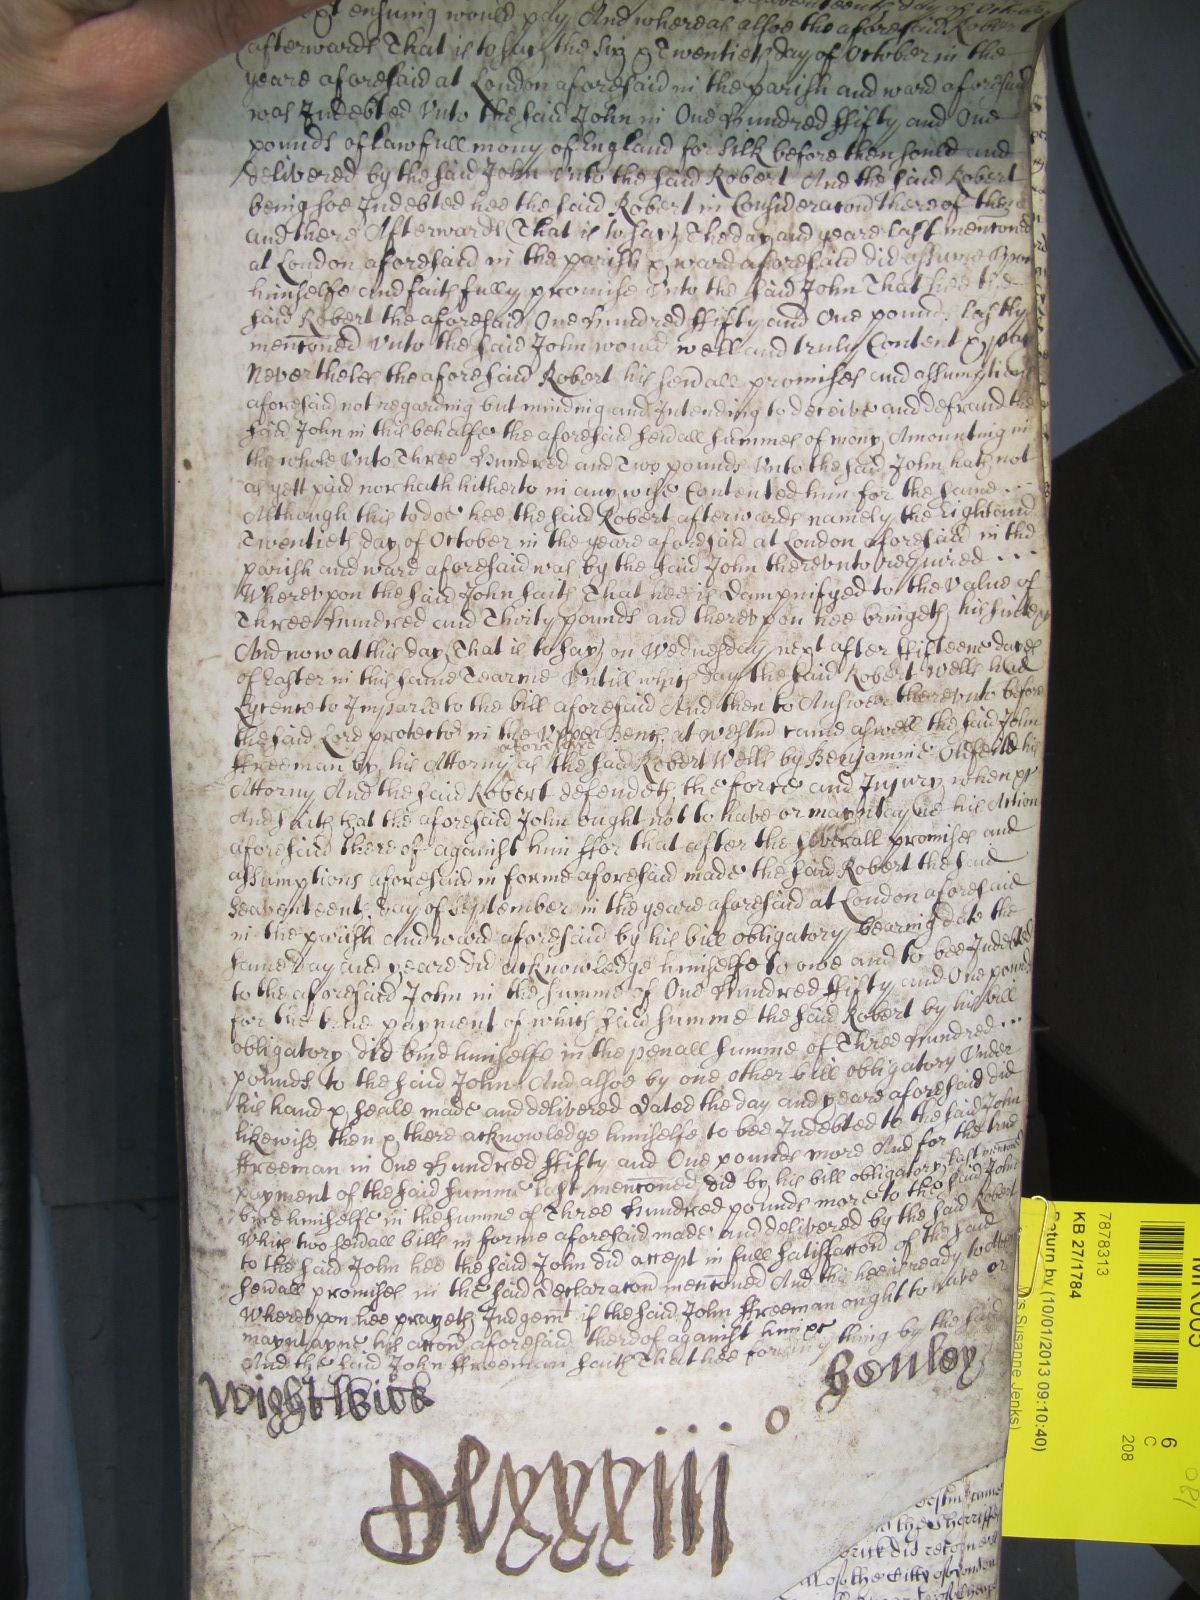 next ensuing would pay And whereas alsoe the aforesaid Robert
afterwards That is to say the Six & Twentieth day of October in the
yeare aforesaid at London aforesaid in the parish and ward aforesaid
was Indebted Unto the said John in One Hundred ffifty and One
pounds of lawfull mony of England for Silk before then sould and
delivered by the said John Unto the said Robert And the said Robert
being soe Indebted hee the said Robert in Consideracon thereof then
and there Afterwards (That is to say) The day and yeare last mentoned
at London aforesaid in the parish & ward aforesaid did assume Upon
himselfe and faithfully promise Unto the said John That hee the
said Robert the aforesaid One Hundred ffifty and One pounds last
mentoned Unto the said John would well and truly Content & pay
Neverthelesse the aforesaid Robert his sevall promises and assumptions
aforesaid not regarding but minding and Intending to deceive and defraud the
said John in this behalfe the aforesaid sevall summes of mony Amounting in
the whole Unto Three Hundred and Two pounds Unto the said John hath not
as yett paid nor hath hitherto in any wise Contented him for the same
Although this to doe hee the said Robert afterwards namely the Eight and
Twentieth day of October in the yeare aforesaid at London aforesaid in the
parish and ward aforesaid was by the said John thereunto required
Whereupon the said John saith That hee is dampnifyed to the value of
Three Hundred and Thirty pounds and thereupon hee bringeth his suite &c
And now at this day That is to say on Wednesday next after ffifteene dayes
of Easter in this same Tearme Untill which day the said Robert Wells had
Lycence to Imparle to the bill aforesaid And then to Answer thereunto before
the said Lord protector in the Upper Bench at Westmr came aswell the said John
ffreeman by his Attorny aforesaid as the said Robert Wells by Benjamine Oldfeild his
Attorny And the said Robert defendeth the force and Injury when &c
And saith that the aforesaid John ought not to have or mayntayne his Action
aforesaid thereof against him ffor that after the severall promises and
assumptions aforesaid in forme aforesaid made the said Robert the said
Seaventeenth day of September in the yeare aforesaid at London aforesaid
in the parish and ward aforesaid by his bill obligatory bearing date the
same day and yeare did acknowledge himselfe to owe and to bee Indebted
to the aforesaid John in the summe of One Hundred ffifty and One pounds
for the true payment of which said summe the said Robert by his bill
obligatory did bind himselfe in the penall summe of Three Hundred
pounds to the said John And alsoe by one other bill obligatory Under
his hand & seale made and delivered dated the day and yeare aforesaid did
likewise then & there acknowledge himselfe to bee Indebted to the said John
ffreeman in One Hundred ffifty and One pounds more And for the true
payment of the said summe last mentoned did by his bill obligatory last mentoned
bind himselfe in the summe of Three Hundred pounds more to the said John
Which two sevall bills in forme aforesaid made and delivered by the said Robert
to the said John hee the said John did accept in full satisfaccon of the said
sevall promises in the said Declaracon mentoned And this hee is ready to
Whereupon hee prayeth Judgemt if the said John ffreeman ought to have or
mayntayne his accon aforesaid thereof against him &c
And the said John ffreeman saith That hee for any thing by the said
Wightwick
Henley
Dlxxxiiio
7878313
KB 27/1784
Return by (10/01/2013 09:10:40)
Susanne Jenks)
6
C
208